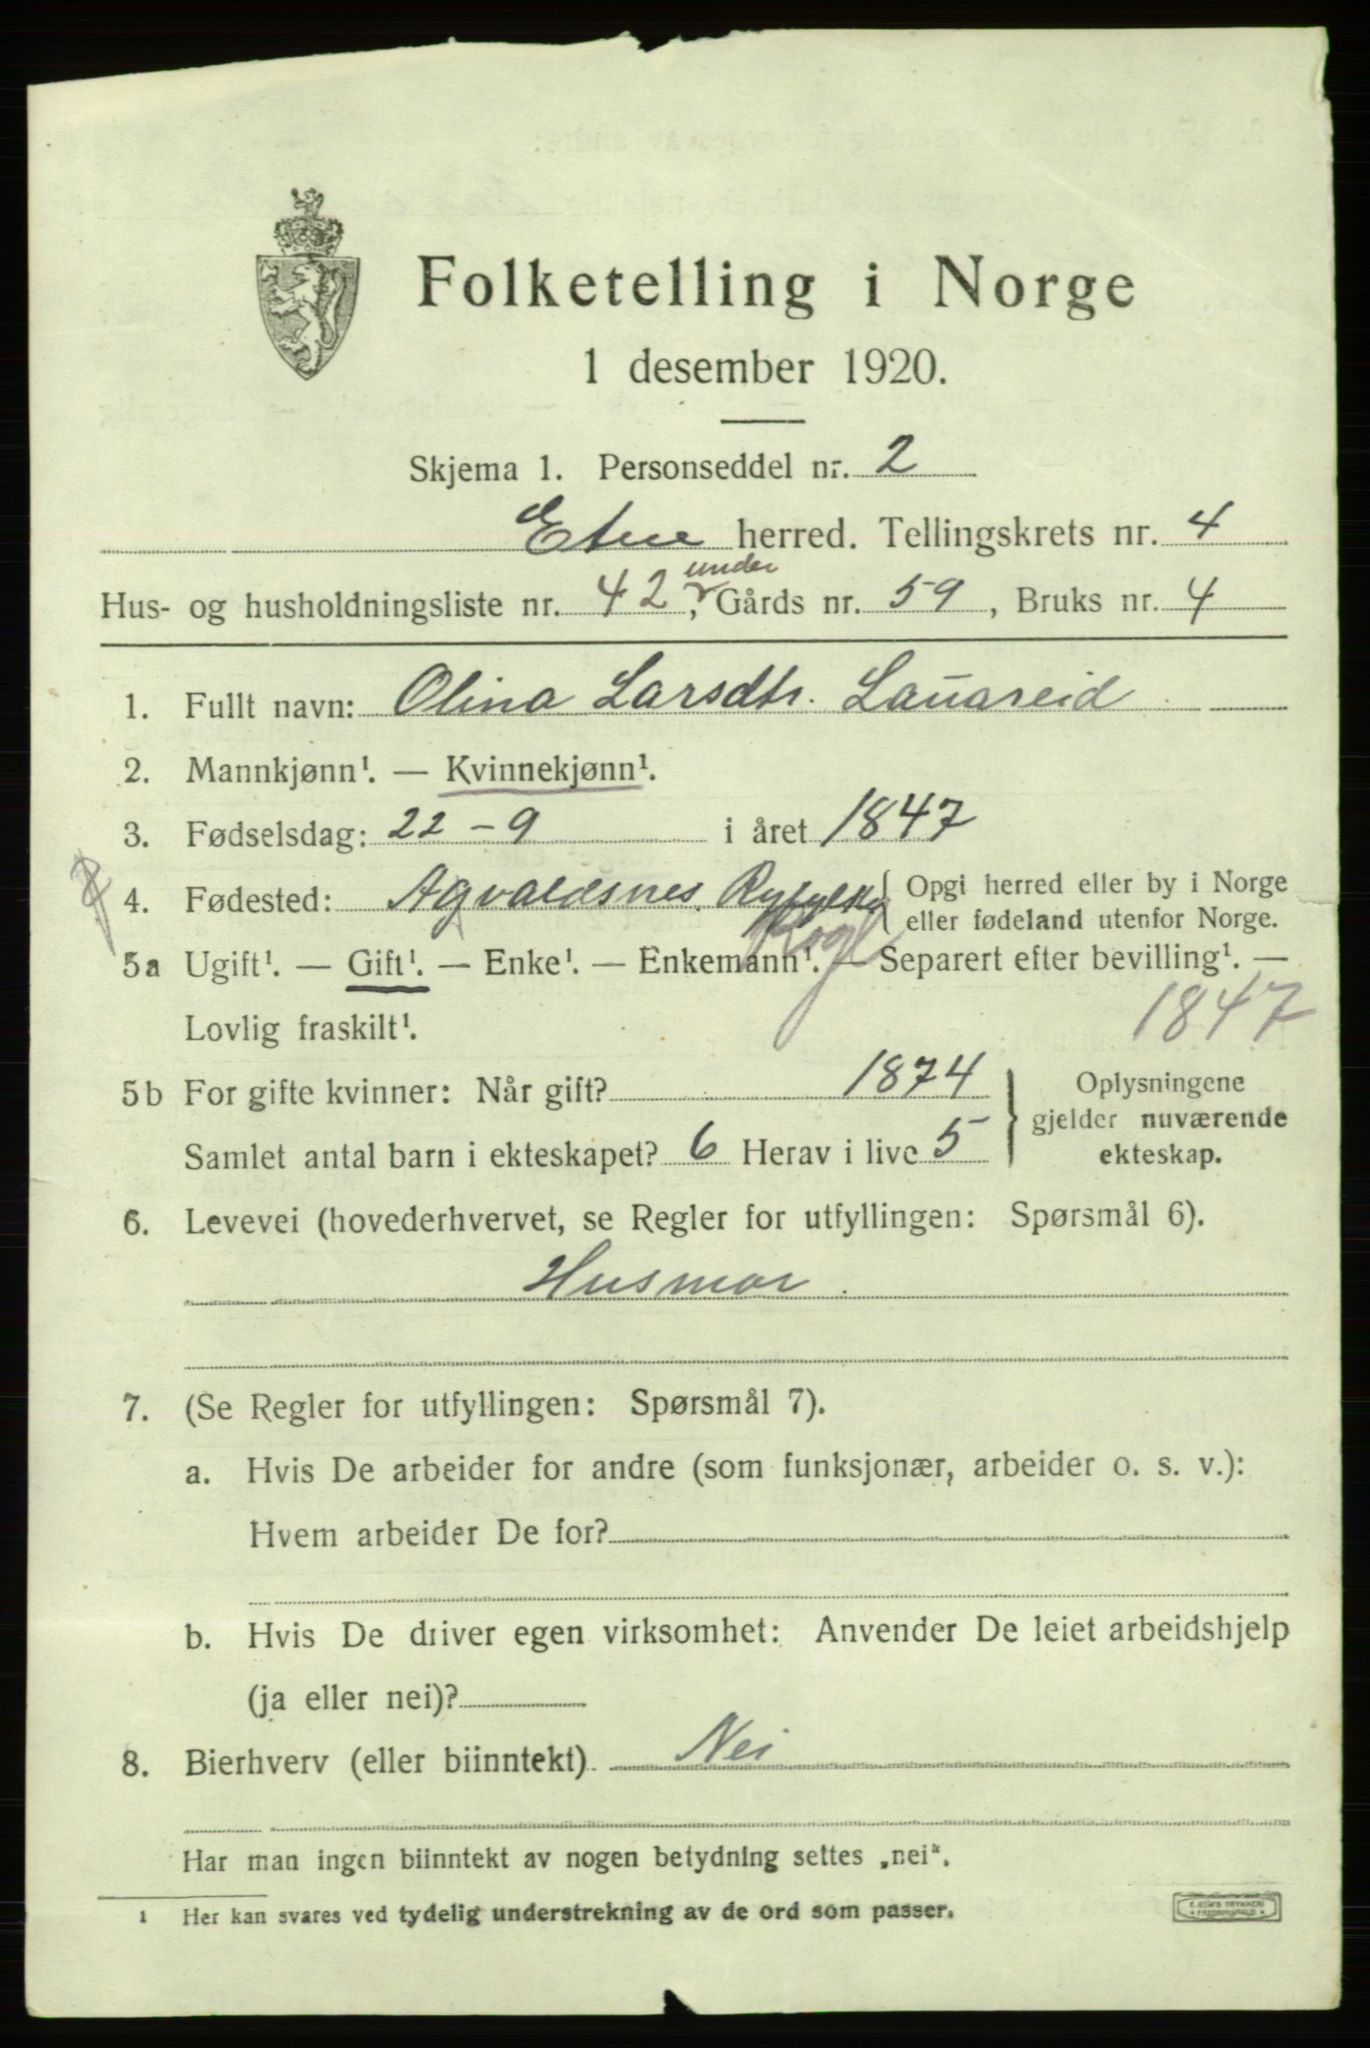 Folketelling i Norge
1 desember 1920.
Skjema 1. Personseddel nr. 2
Etne herred. Tellingskrets nr. 4
under
Hus- og husholdningsliste nr. 42, Gårds nr. 59, Bruks nr. 4
1. Fullt navn: Olina Larsdtr. Lauareid
2. Mannkjønn¹. — Kvinnekjønn¹.
3. Fødselsdag: 22 - 9 i året 1847
4. Fødested: Agvaldsnes. Ryfylke { Opgi herred eller by i Norge
eller fødeland utenfor Norge.
Rogl
5a Ugift¹. — Gift¹. — Enke¹. — Enkemann¹. — Separert efter bevilling¹. —
Lovlig fraskilt¹. 1847
5b For gifte kvinner: Når gift? 1874 } Oplysningene
gjelder nuværende
Samlet antal barn i ekteskapet? 6 Herav i live 5 ekteskap.
6. Levevei (hovederhvervet, se Regler for utfyllingen: Spørsmål 6).
Husmor.
7. (Se Regler for utfyllingen: Spørsmål 7).
a. Hvis De arbeider for andre (som funksjonær, arbeider o. s. v.):
Hvem arbeider De for?
b. Hvis De driver egen virksomhet: Anvender De leiet arbeidshjelp
(ja eller nei)?
8. Bierhverv (eller biinntekt) Nei
Har man ingen biinntekt av nogen betydning settes „nei“.
¹ Her kan svares ved tydelig understrekning av de ord som passer.